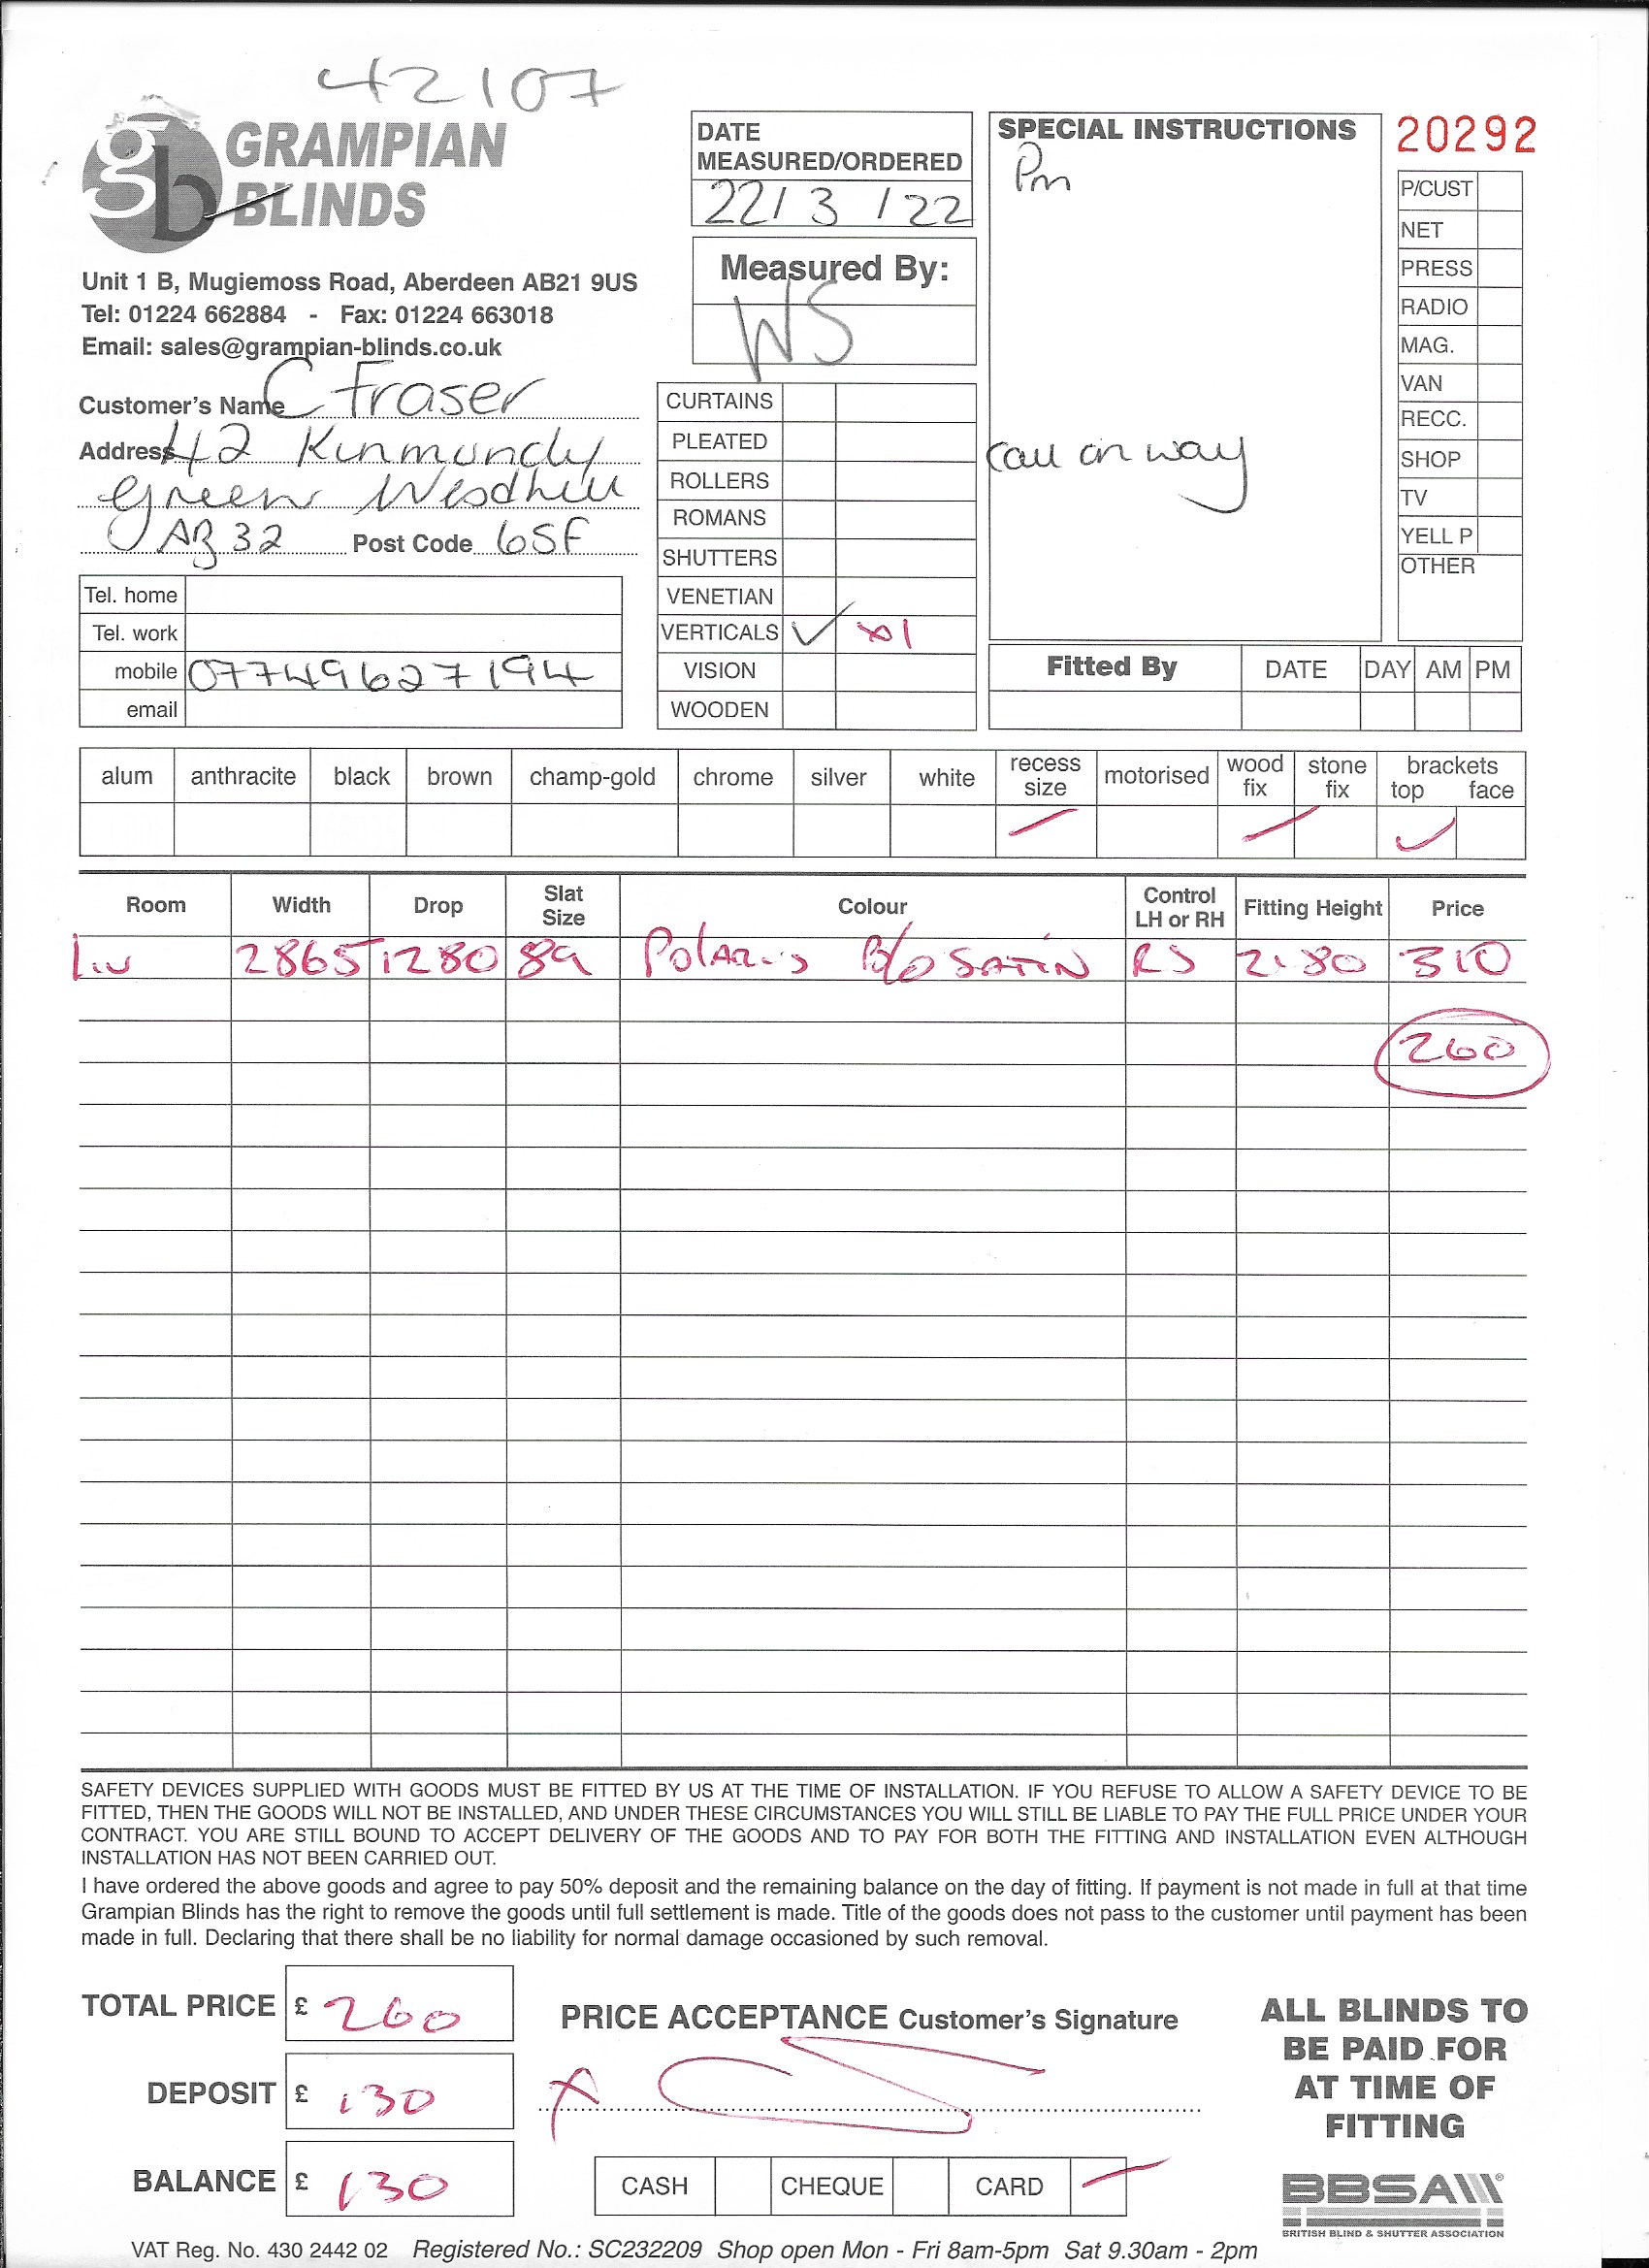 42107
gb GRAMPIAN
BLINDS
Unit 1 B, Mugiemoss Road, Aberdeen AB21 9US
Tel: 01224 662884 - Fax: 01224 663018
Email: sales@grampian-blinds.co.uk
Customer's Name C Fraser
Address 42 Kinmundy
Green Westhill
AB32 Post Code 6SF
Tel. home
Tel. work
mobile 07749627194
email
DATE
MEASURED/ORDERED
22/3/22
Measured By:
WS
CURTAINS
PLEATED
ROLLERS
ROMANS
SHUTTERS
VENETIAN
VERTICALS ✓ x1
VISION
WOODEN
SPECIAL INSTRUCTIONS
Pm
Call on way
20292
P/CUST
NET
PRESS
RADIO
MAG.
VAN
RECC.
SHOP
TV
YELL P
OTHER
Fitted By DATE DAY AM PM
alum anthracite black brown champ-gold chrome silver white recess size motorised wood fix stone fix brackets top face
Room Width Drop Slat Size Colour Control LH or RH Fitting Height Price
Liv 2865 1280 89 Polaris B/O SATIN RS 2180 310
260
SAFETY DEVICES SUPPLIED WITH GOODS MUST BE FITTED BY US AT THE TIME OF INSTALLATION. IF YOU REFUSE TO ALLOW A SAFETY DEVICE TO BE
FITTED, THEN THE GOODS WILL NOT BE INSTALLED, AND UNDER THESE CIRCUMSTANCES YOU WILL STILL BE LIABLE TO PAY THE FULL PRICE UNDER YOUR
CONTRACT. YOU ARE STILL BOUND TO ACCEPT DELIVERY OF THE GOODS AND TO PAY FOR BOTH THE FITTING AND INSTALLATION EVEN ALTHOUGH
INSTALLATION HAS NOT BEEN CARRIED OUT.
I have ordered the above goods and agree to pay 50% deposit and the remaining balance on the day of fitting. If payment is not made in full at that time
Grampian Blinds has the right to remove the goods until full settlement is made. Title of the goods does not pass to the customer until payment has been
made in full. Declaring that there shall be no liability for normal damage occasioned by such removal.
TOTAL PRICE £ 260
DEPOSIT £ 130
BALANCE £ 130
PRICE ACCEPTANCE Customer's Signature
x
CASH CHEQUE CARD
ALL BLINDS TO
BE PAID FOR
AT TIME OF
FITTING
BBSA
BRITISH BLIND & SHUTTER ASSOCIATION
VAT Reg. No. 430 2442 02 Registered No.: SC232209 Shop open Mon - Fri 8am-5pm Sat 9.30am - 2pm